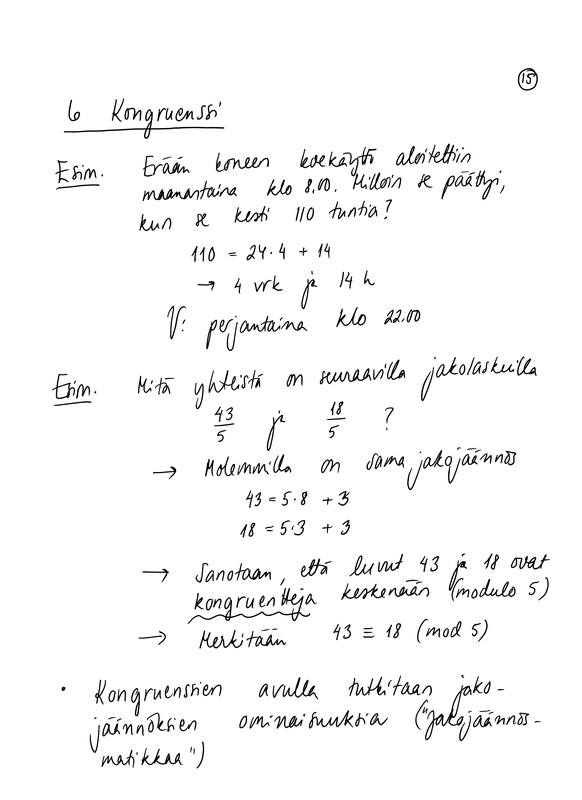 15
6 Kongruenssi
Esim. Erään koneen koekäyttö aloitettiin
maanantaina klo 8.00. Milloin se päättyi,
kun se kesti 110 tuntia?
110 = 24·4 + 14
→ 4 vrk ja 14 h
V: perjantaina klo 22.00
Esim. Mitä yhteistä on seuraavilla jakolaskuilla
43/5 ja 18/5 ?
→ Molemmilla on sama jakojäännös
43 = 5·8 + 3
18 = 5·3 + 3
→ Sanotaan, että luvut 43 ja 18 ovat
kongruentteja keskenään (modulo 5)
→ Merkitään 43 ≡ 18 (mod 5)
• Kongruenssien avulla tutkitaan jako-
jäännöksien ominaisuuksia ("Jakojäännös-
matiikkaa")